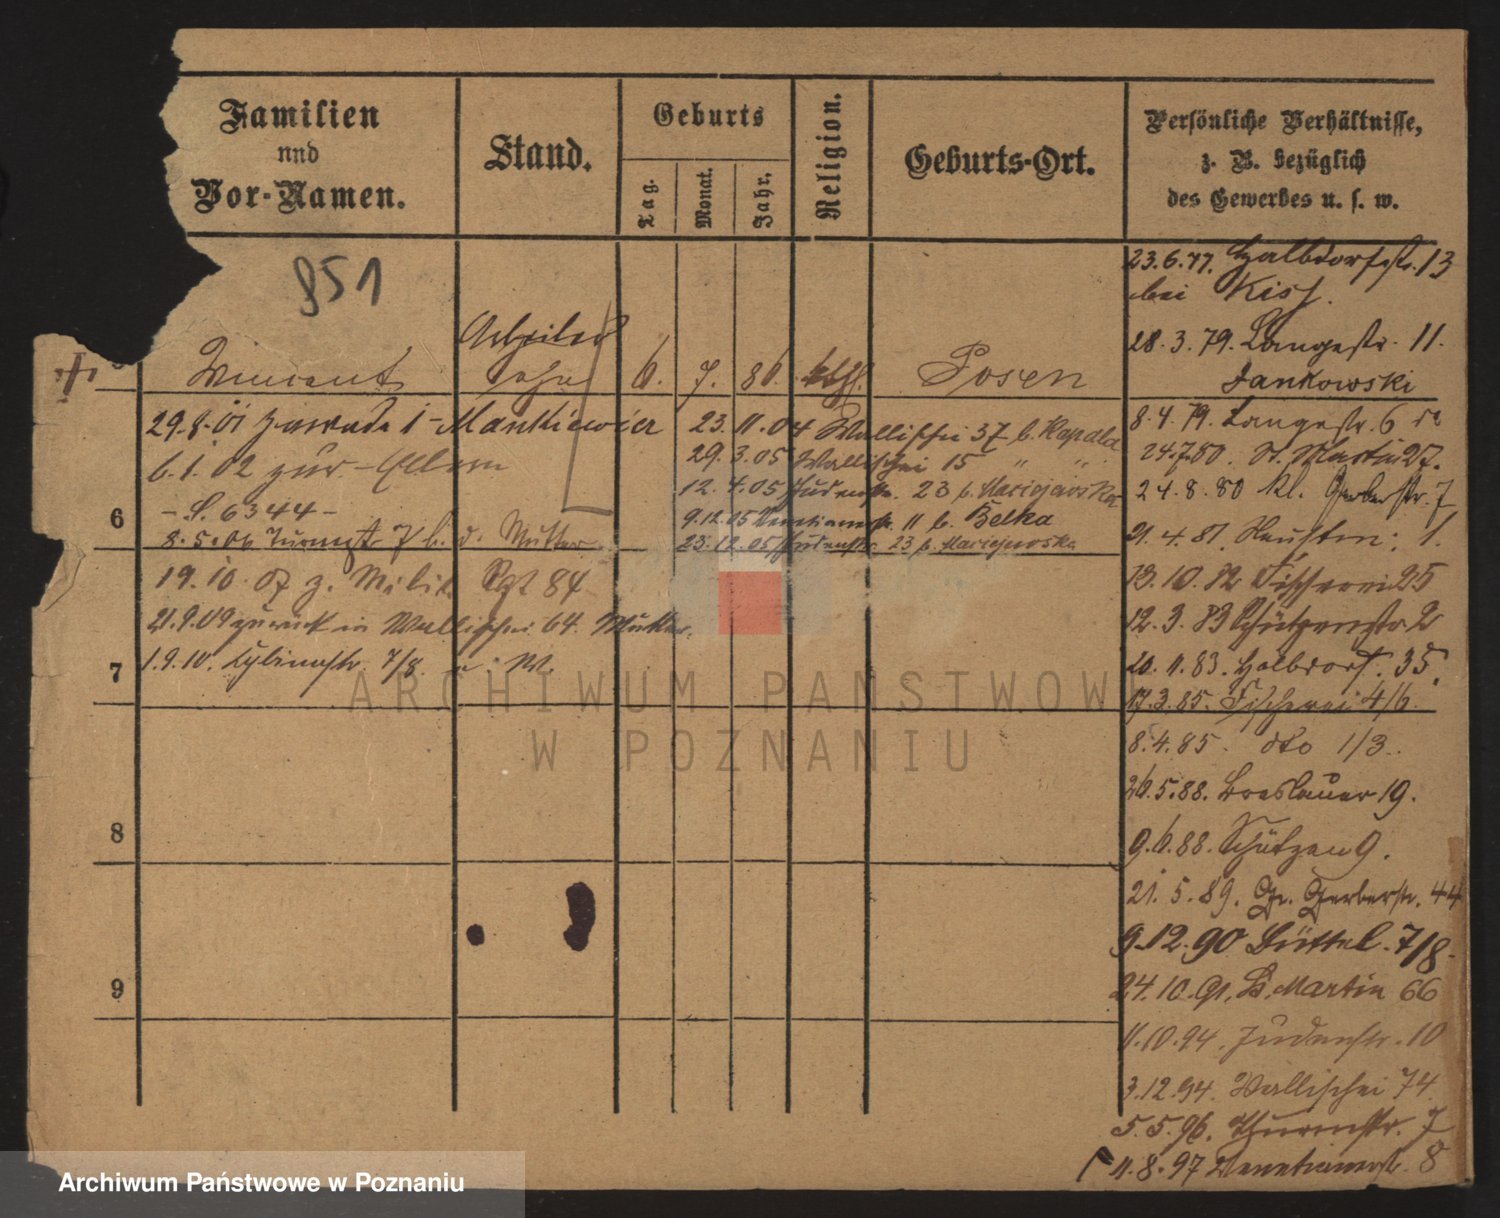 Familien
und
Vor-Namen.
Stand.
Geburts
Tag.
Monat.
Jahr.
Religion.
Geburts-Ort.
Persönliche Verhältnisse,
z. B. bezüglich
des Gewerbes u. s. w.
851
23.6.77. Halbdorfstr. 13
bei Kiss.
28.3.79. Langestr. 11.
Jankowski
Arbeiter
Vincent 6. 7. 86. kath. Posen
29.8.01 1 - Mankiewicz
6.1.02 zur - Eltern
- S. 6344 -
6
8.5.06 Turmstr 7 b. d. Mutter
23.11.04 Wallischei 37 b. Kapala
29.3.05 Wallischei 15 " "
12.4.05 Judenstr. 23 b. Maciejewska
9.12.05 Venetianerstr. 11 b. Belka
23.12.05 Judenstr. 23 b. Maciejewska
8.4.79. Langestr. 6
24.7.80. St. Martin 27.
24.8.80 kl. Gerberstr. 7
21.4.81. 1.
13.10.82 Fischerei 25
12.3.83 Schützenstr 2
20.11.83. Halbdorf. 35.
17.3.85. Fischerei 4/6.
19.10.07 z. Milit. Rgt 84
21.9.09 zurück in Wallischei 64. Mutter.
7
1.9.10. 7/8
8.4.85. dto 1/3.
26.5.88. Breslauer 19.
8
9.6.88. Schützen 9.
21.5.89. Gr. Gerberstr. 44
9.12.90 Büttel. 7/8.
9
24.10.91. St. Martin 66
11.10.94. Judenstr. 10
3.12.94. Wallischei 74
5.5.96. Thurmstr. 7
11.8.97 Venetianerstr. 8
ARCHIWUM PAŃSTWOW
W POZNANIU
Archiwum Państwowe w Poznaniu